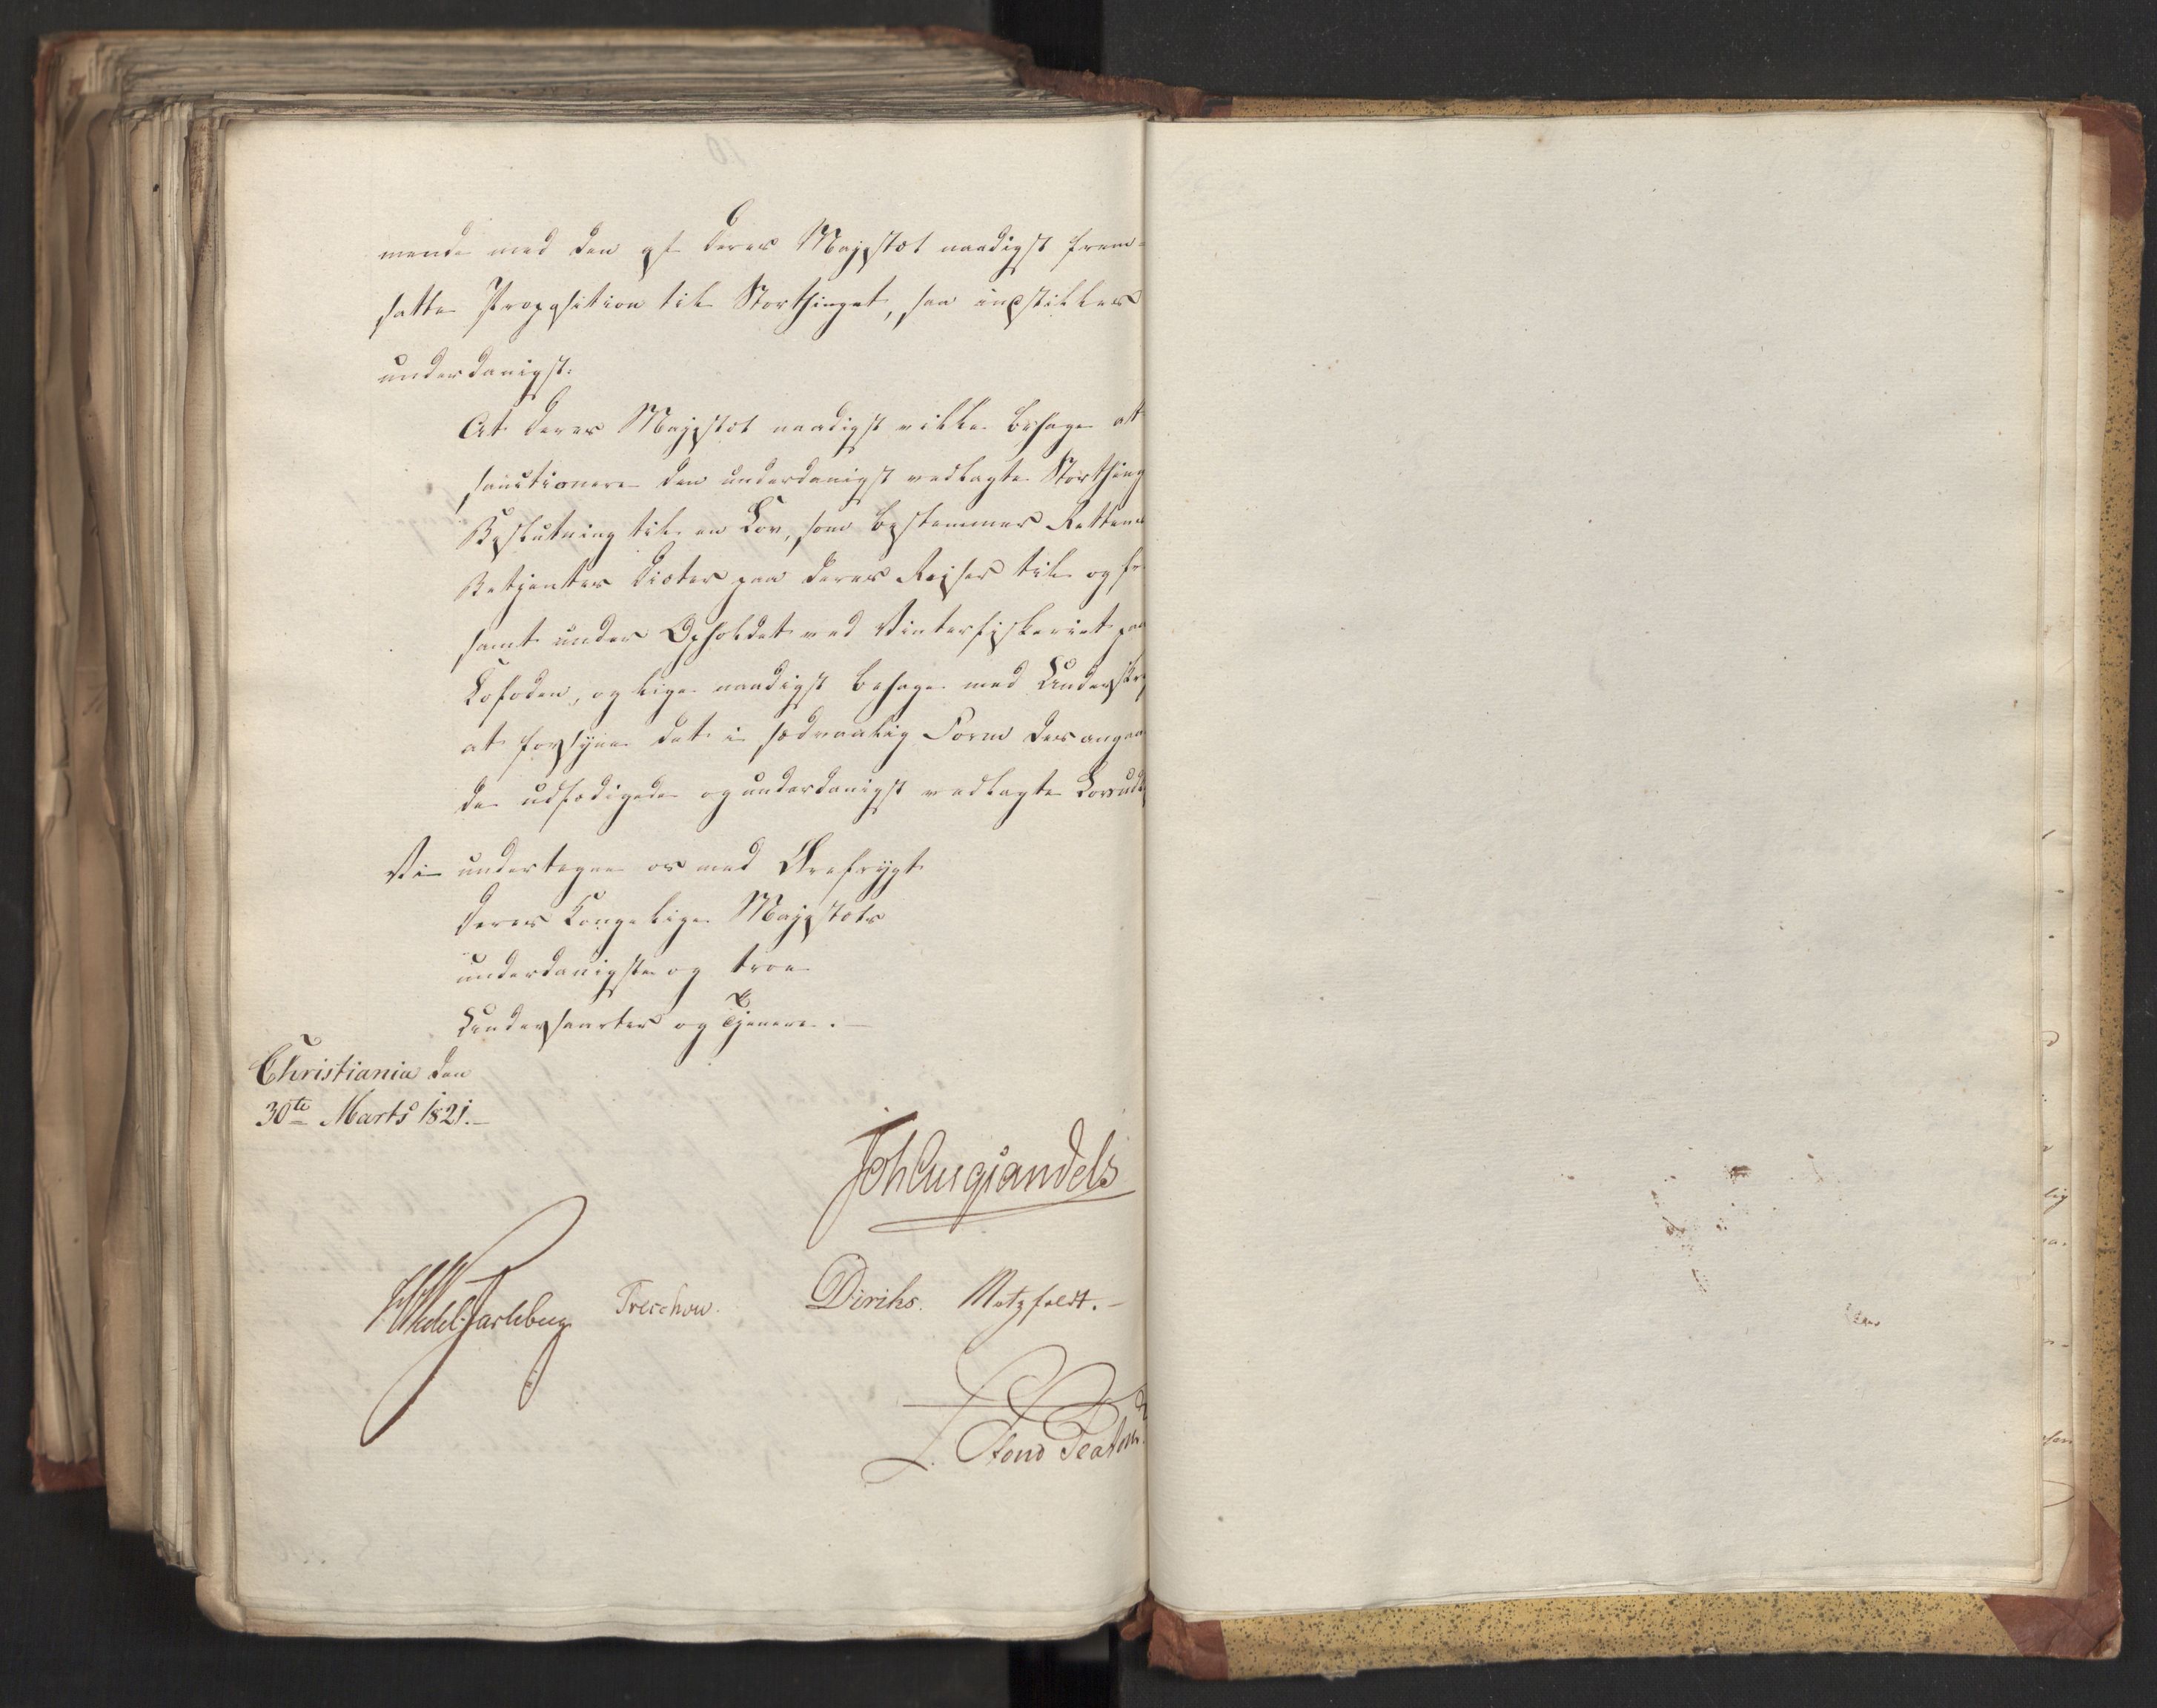 mende med den af Deres Majestæt naadigst frem-
satte Proposition til Storthinget, saa indstilles
underdanigst:
At Deres Majestæt naadigst ville behage at
sanctionere den underdanigst vedlagte Storthing
Beslutning til en Lov, som bestemmer Rettens
Betjentes Diæter paa deres Reiser til og fr
samt under Opholdet ved Vinterfiskeriet paa
Lofoden, og lige naadigst behage med Underskr
at forsyne det i sædvanlig Form des angaa
de udfærdigede og underdanigst vedlagte Lovud
Vi undertegne os med Ærefrygt
Deres Kongelige Majestæts
underdanigste og troe
Undersaatter og Tjenere. —
Christiania den
30te Marts 1821. —
Joh Aug Sandels
HWedel Jarlsberg Treschow. Diriks. Motzfeldt. —